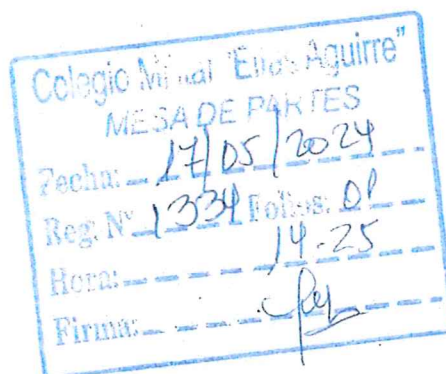 Colegio "Elias Aguirre"
MESA DE PARTES
Fecha: 17/05/2024
Reg. Nº 1334 Folios: 01
Hora: 14.25
Firma: